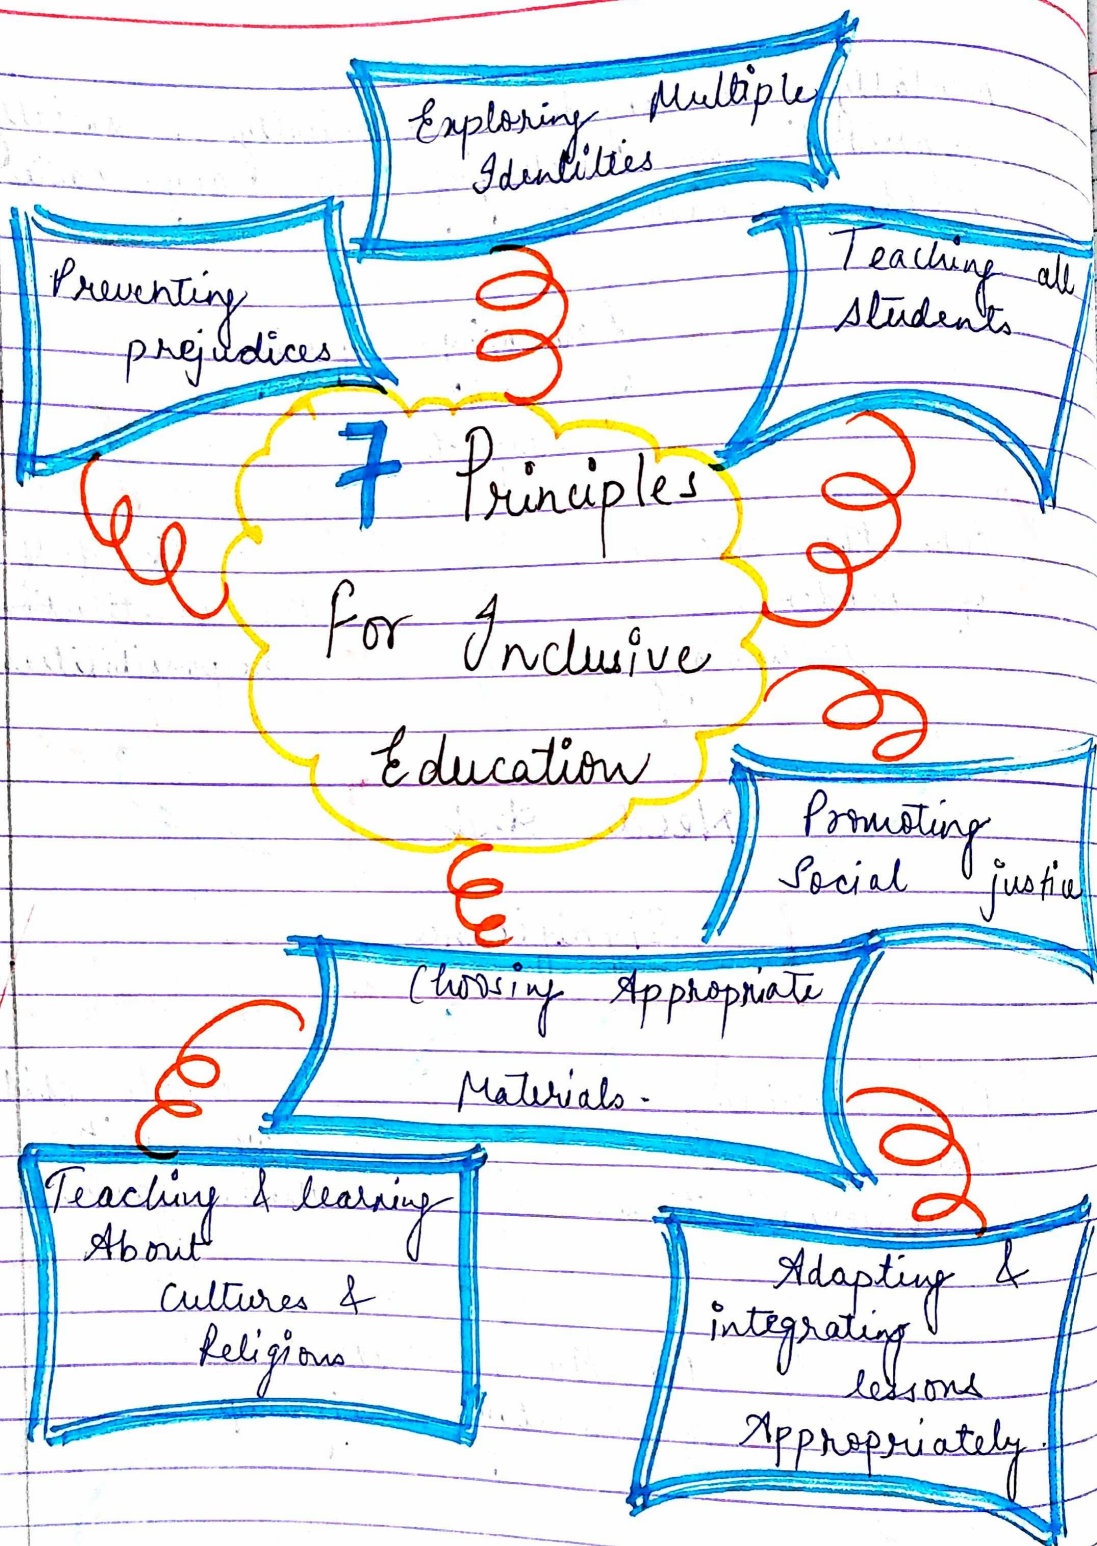 Exploring Multiple
Identities
Preventing
prejudices
Teaching all
students
7 Principles
For Inclusive
Education
Promoting
Social justice
Choosing Appropriate
Materials.
Teaching & learning
About
Cultures &
Religions
Adapting &
integrating
lessons
Appropriately.